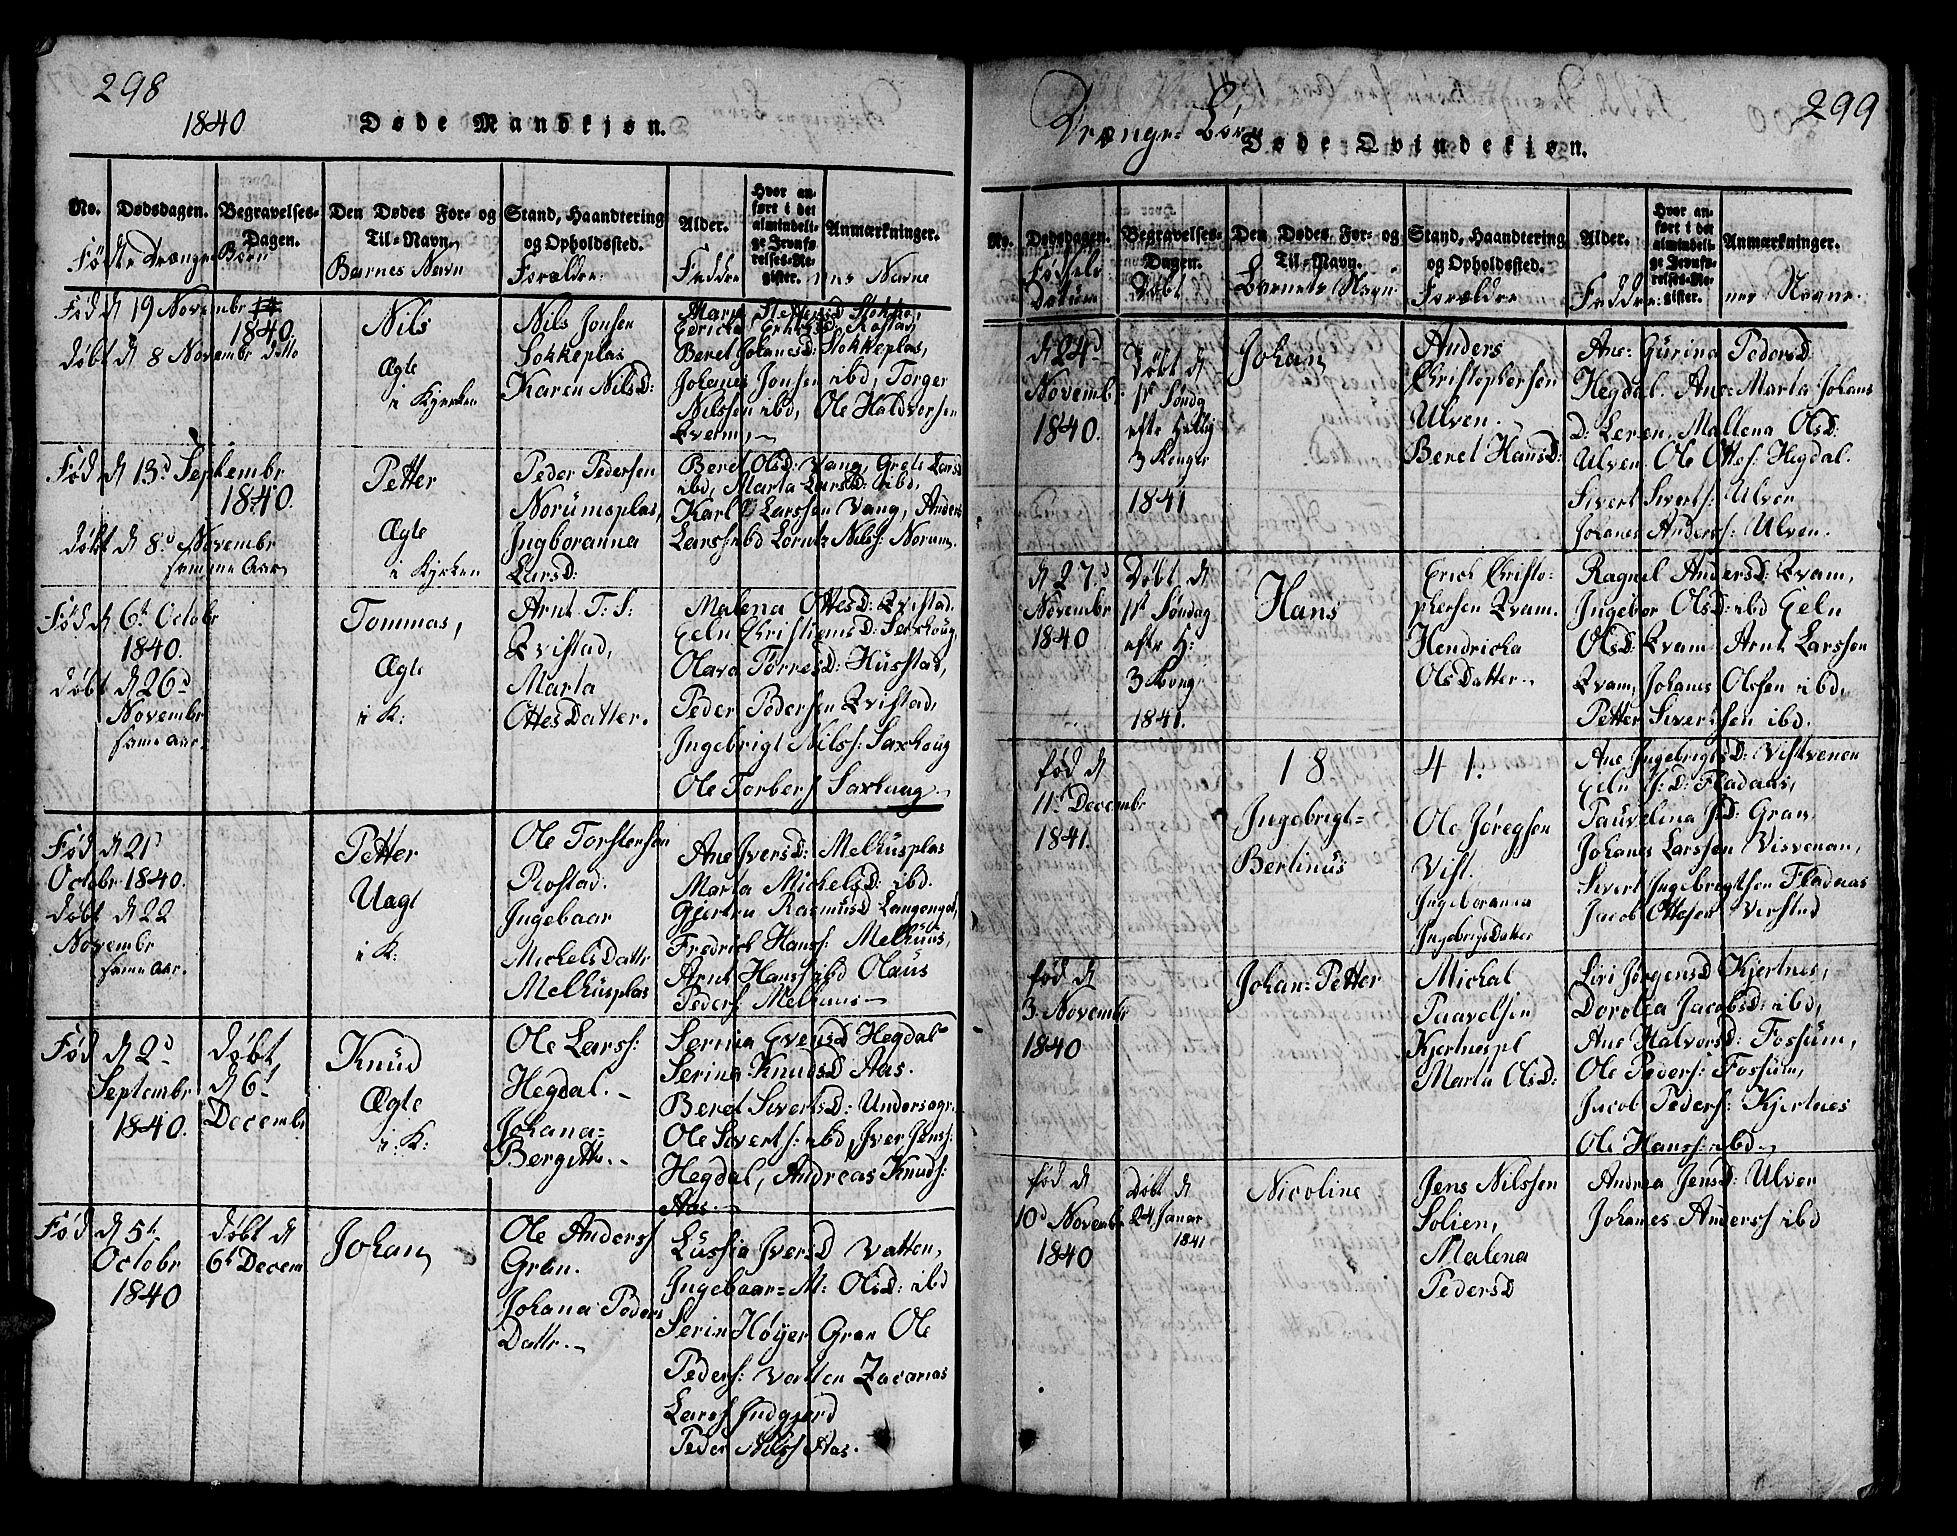 298
1840
Døde Mandkjøn.
No.
Dødsdagen.
Begravelses-
Dagen.
Den Dødes For- og
Til-Navn.
Stand, Haandtering
og Opholdssted.
Alder.
Hvor an-
ført i det
almindeli-
ge Jevnfø-
relses-Re-
gister.
Anmærkninger.
Fødte Drænge Børn
Barnes Navn
Forældre
Faddre
nes Navne
Fød d 19 Novembr
1840.
døbt d 8 Novembr dette
Nils
Ægte
i Kyrken
Nils Jonsen
Sokkeplas
Karen Nilsd:
Beret Johanesd: Stokkeplas,
Johanes Jonsen ibd, Torger
Nilssen ibd, Ole Haldvorsen
Qvam,
Fød d 13d Septembr
1840.
døbt d 8d Novembr
samme Aar
Petter
Ægte
i Kyrken
Peder Pedersen
Norumsplas,
Ingboranna
Larsd:
Beret Olsd: Vang, Grete Larsd
ibd, Marta Larsd: ibd,
Karl Larssen Vang, Anders
Larss: ibd Lorntz Nilss: Norum.
Fød d 6t Octobr
1840.
døbt d 26d
Novembr
samme Aar.
Tommas,
Ægte
i K:
Arnt T: S:
Qvistad,
Marta
OttesDatter.
Malena Ottesd: Qvistad.
Eeln Christiansd: Saxhoug,
Olava Torresd: Husstad,
Peder Pedersen Qvistad,
Ingebrigt Nilss: Saxhoug
Ole Torbers Saxhaug.
Fød d 21d
Octobr 1840.
døbt d 22
Novembr
samme Aar.
Petter
Uægt
i K:
Ole Torstensen
Rostad.
Ingebaar
MichelsDattr
Melhusplas
Ane Iversd: Melhusplas
Marta Michelsd: ibd.
Gjertru Rasmusd Langenget,
Fredrich Hanss: Melhuus,
Arnt Hanss ibd Olaus
Peders: Melhuus
Fød d 2d
Septembr
1840.
døbt
d 6t
Decembr
Knud
Ægte
i K:
Ole Larss:
Hegdal.
Johana=
Bergitte.
Serina Evensd Hegdal
Serina Knudsd Aas.
Beret Sivertsd: Undersagr.
Ole Siverts: ibd, Iver Jenss:
Hegdal, Andreas Knuds:
Aas.
Fød d 5t
Octobr
1840
døbt d
6t Decem
Johan
Ole Anderss
Gran.
Johana Peders
Dattr.
Lussia Iversd Vatten,
Ingebaar=M: Olsd: ibd
Serin Høyer Gran Ole
Peders: Vatten Zacarias
Larss Indgjerd
Peder Nilss Aas.
299
Drænge= Børn
Døde Qvindekjøn.
No.
Dødsdagen.
Begravelses-
Dagen.
Den Dødes For- og
Til-Navn.
Stand, Haandtering
og Opholdssted.
Alder.
Hvor an-
ført i det
almindeli-
ge Jevnfø-
relses-Re-
gister.
Anmærkninger.
Fødsels
Datum
Døbt
Barnets Navn
Forældre
Faddre:
nes Nogne.
d 24d
Novembr.
1840.
Døbt d
1st Søndag
eftr Hellig
3 Konger
1841
Johan
Anders
Christophersen
Ulven.
Beret Hansd:
Ane: Gurina Pedersd
Hegdal. Ane: Marta Johans
D: Leren, Mallena Olsd:
Ulven. Ole Ottes: Hegdal.
Sivert Siverts: Ulven
Johanes Anderss: Ulven.
d 27d
Novembr
1840
Døbt, d
1st Søndag
eftr H:
3 Kong
1841.
Hans
Erich Christo-
phersen Qvam.
Hendricka
OlsDatter.
Ragnel Andersd: Qvam,
Ingebor Olsd: ibd Eeln
Olsd: Qvam Arnt Larssen
Qvam, Johanes Olssen ibd,
Petter Sivertsen ibd.
18 41.
fød d
11t Decembr
1841.
Ingebrigt=
Bertinus
Ole Jøregsen
Vist.
Ingeboranna
IngebrigsDatter
Ane Ingebrigtsd: Vistvenen
Eeln J: D: Fladaas,
Pauvelina Jsd: Gran,
Johanes Larssen Visvenan,
Sivert Ingebrigtsen Fladaas
Jacob Ottesen Verstad
fød d
3 Novembr
1840
Johan=Petter
Michal
Paavelsen
Kjertnespl
Marta Olsd:
Siri Jørgensd Kjertnes,
Dorotea Jacobsd: ibd,
Ane Halvorsd: Fossum,
Ole Peders: Fossum,
Jacob Peders: Kjertnes
Ole Hanss: ibd.
fød d
10d Novembr
1840
Døbt d
24 Janar
1841
Nicoline
Jens Nilssen
Solien,
Malena
Pedersd
Andrea Jensd: Ulven
Johanes Anderss ibd